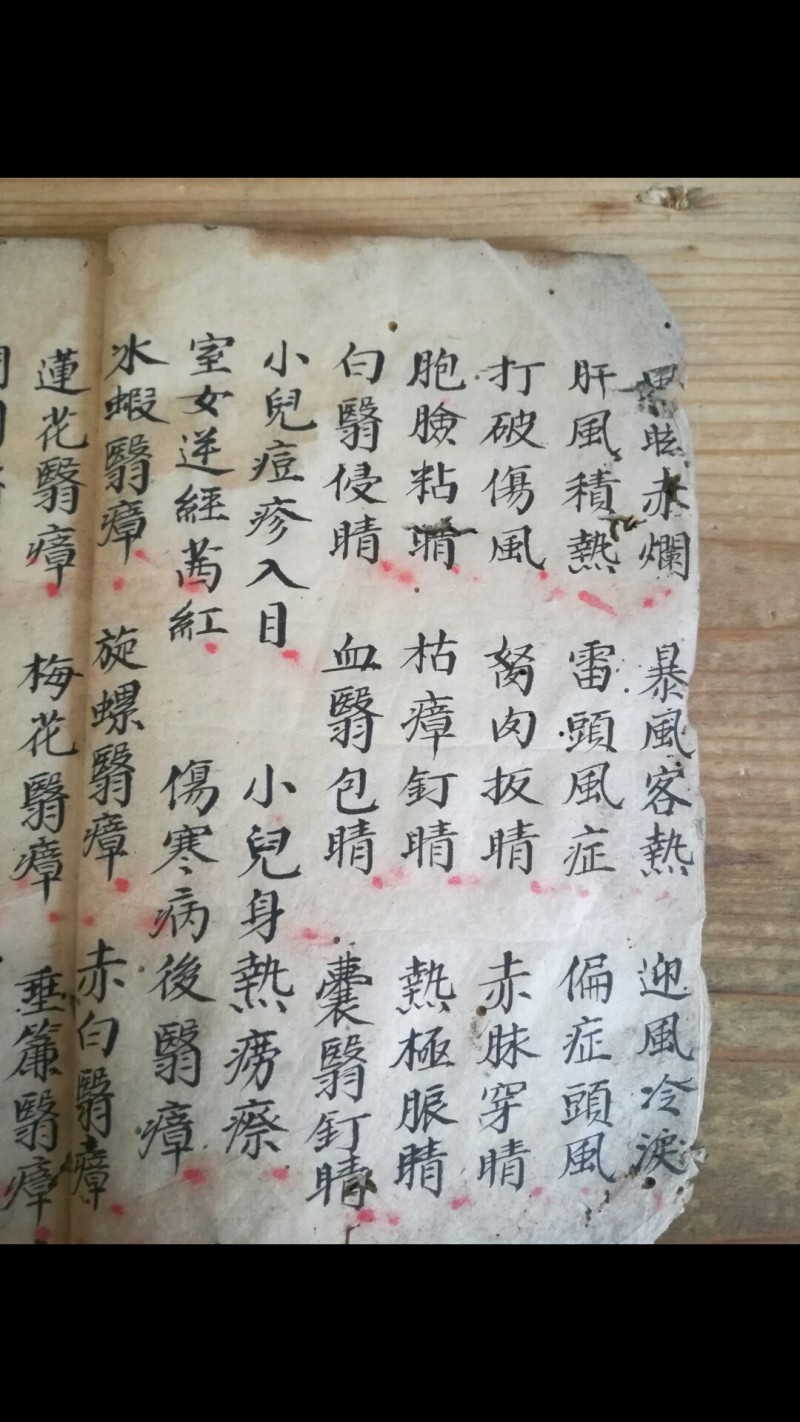 眩赤爛 暴風客熱 迎風冷淚
肝風積熱 雷頭風症 偏症頭風
打破傷風 胬肉扳睛 赤脉穿睛
胞臉粘睛 枯瘴釘睛 熱極脹睛
白翳侵睛 血翳包睛 囊翳釘睛
小兒痘疹入目 小兒身熱癆瘵
室女逆經茜紅 傷寒病後翳瘴
冰蝦翳瘴 旋螺翳瘴 赤白翳瘴
蓮花翳瘴 梅花翳瘴 垂簾翳瘴